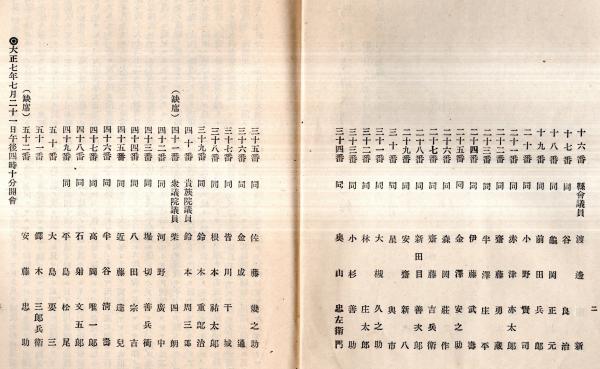 二
十六番 縣會議員 渡邊新
十七番 同 谷良治
十八番 同 龜岡正元
十九番 同 前田兵郎
二十番 同 小野賢司
二十一番 同 赤津赤太郎
二十二番 同 齋藤勇藏
二十三番 同 半澤庄平
二十四番 同 伊藤武壽
二十五番 同 金澤安之助
二十六番 同 森岡莊作
二十七番 同 齋藤吉兵衛
二十八番 同 新田目善次郎
二十九番 同 安齋新八
三十番 同 星與市
三十一番 同 大槻久之助
三十二番 同 林庄太郎
三十三番 同 小杉善助
三十四番 同 奧山忠左衛門
三十五番 同 佐藤幾之助
三十六番 同 金成通
三十七番 同 皆川干城
三十八番 同 根本祐太郎
三十九番 同 鈴木重郎治
四十番 貴族院議員 鈴木周三郎
(缺席) 四十一番 衆議院議員 柴四朗
四十二番 同 河野廣中
四十三番 同 堀切善兵衛
四十四番 同 八田宗吉
四十五番 同 近藤達兒
四十六番 同 半谷清壽
四十七番 同 高岡唯一郎
四十八番 同 石射文五郎
四十九番 同 平島松尾
五十番 大島要三
五十一番 鐸木三郎兵衛
(缺席) 五十二番 安藤忠助
◎大正七年七月二十一日午後四時十分開會
三